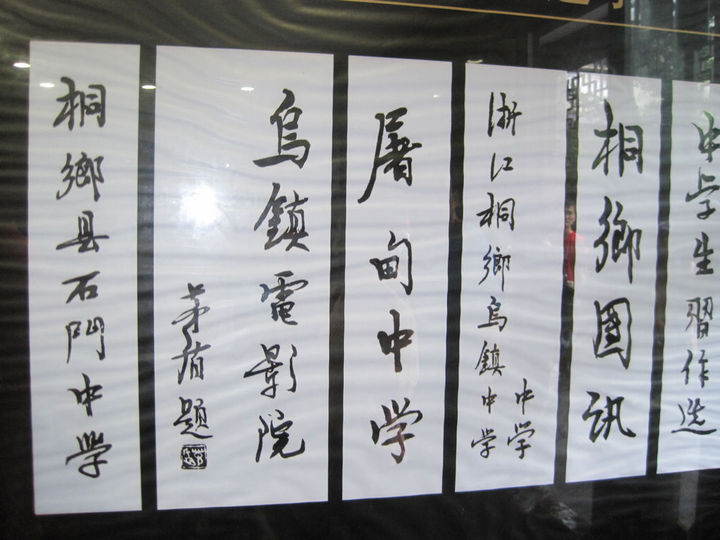 中学生習作选
桐鄉訊
浙江桐鄉烏鎮中学
中学
屠甸中学
烏鎮電影院
茅盾題
桐鄉县石門中学